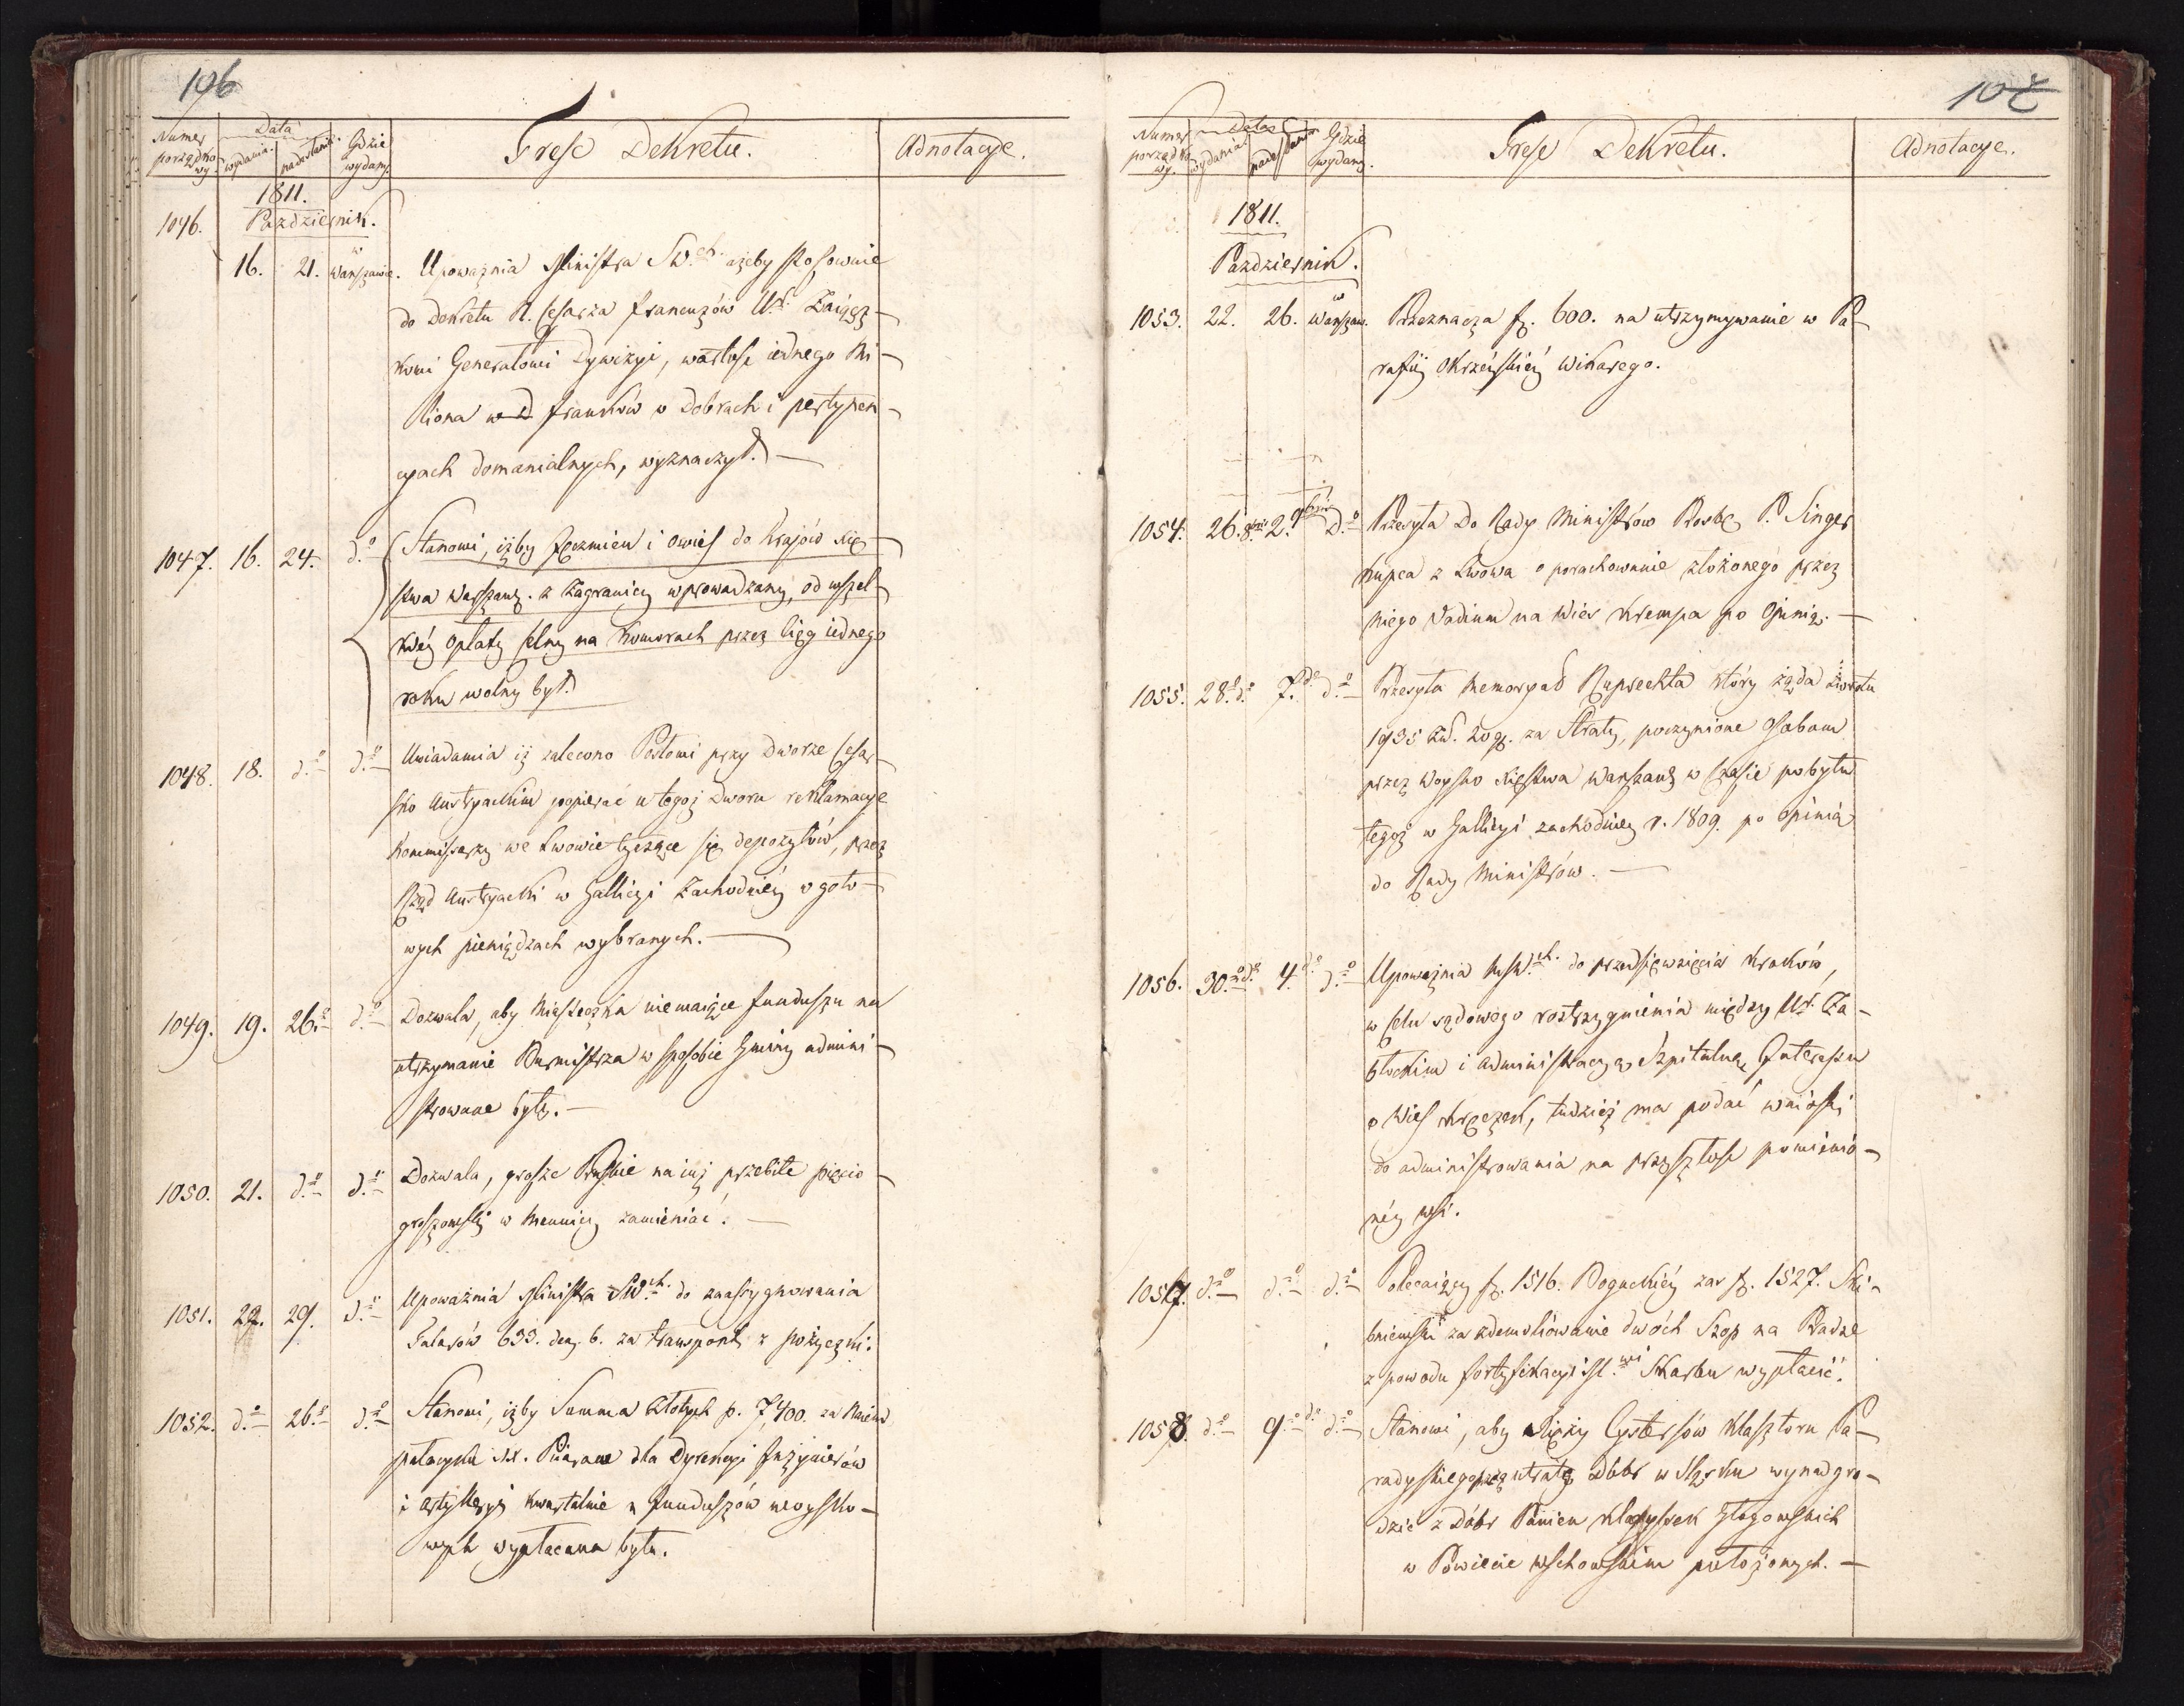 106
Numer porządkowy. Data wydania. nadesłania. Gdzie wydany. Treść Dekretu. Adnotacye.
1811.
Październik.
1046. 16. 21. w Warszawie. Upoważnia Ministra SW.ch ażeby stosownie
do Dekretu N. Cesarza Francuzów Ur. Zaiącz-
kowi Generałowi Dywizyi, wartość iednego Mi-
liona franków w Dobrach i pertynen-
cyach domanialnych, wyznaczył. —
1047. 16. 24. d.o Stanowi, iżby Jęczmień i Owies do Kraiów Xię-
stwa Warszaws. z Zagranicy wprowadzany, od wszel-
kiéy opłaty Celny na Komorach przez ciąg iednego
roku wolny był.
1048. 18. d.o d.o Uwiadamia iż zalecono Posłowi przy Dworze Cesar-
sko Austryackim popierać u tegoż Dworu reklamacye
Kommissarzy we Lwowie tyczące się depozytów, przez
Rząd Austryacki w Gallicyi Zachodniéy w goto-
wych pieniądzach wybranych. —
1049. 19. 26. d.o Dozwala, aby Miasteczka niemaiące funduszu na
utrzymanie Burmistrza w sposobie Gminy admini-
strowane były. —
1050. 21. d.o d.o Dozwala, grosze Pruskie na inż przebite pięcio
groszowski w Mennicy zamieniać. —
1051. 22. 29. d.o Upoważnia Ministra SW.ch do zaassygnowania
Talarów 633. den. 6. za transport z pożyczki.
1052. d.o 26. d.o Stanowi, iżby Summa Złotych p. 7,400. za Naiem
pałacyku XX. Piiarów dla Dyrekcyi Inżynierów
i Artylleryi kwartalnie z funduszów woysko-
wych wypłacana była.
107
Numer porządkowy. Data wydania nadesłania Gdzie wydany. Treść Dekretu. Adnotacye.
1811.
Październik.
1053. 22. 26. w Warszaw. Przeznacza f. 600. na utrzymywanie w Pa-
rafii Okrzéyskiéy Wikarego.
1054. 26. 8bris 2. 9bris d.o Przesyła do Rady Ministrów Prośbę P. Singer
kupca z Lwowa o porachowanie złożonego przez
niego Vadium na Wieś Krempa po Opinią. —
1055. 28. d.o 7. d.o d.o Przesyła Memoryał Ruprechta który żąda zwrotu
1935 Zł. 20 g. za Straty, poczynione Osobom
przez Woysko Xięstwa Warszaws w Czasie pobytu
tegoż w Gallicyi zachodniey r. 1809. po Opinią
do Rady Ministrów. —
1056. 30. d.o 4. d.o d.o Upoważnia MSW.ch do przedsięwzięcia kroków,
w Celu sądowego rostrzygnienia między Ur. Za-
błockim i Administracyą Szpitalną Interessu
o Wieś, tudzież ma podać wnioski
do administrowania na przyszłość pomienio-
néy wsi.
1057. d.o d.o d.o Polecaiący f. 1516. Boguckiéy zaś f. 1527. Ski-
bniewski za zdemoliowanie dwóch Szop na Pradze
z powodu fortyfikacyi Skarbu wypłacić.
1058. d.o 9. d.o d.o Stanowi, aby Xięży Cystersów Klasztoru Pa-
radyskiego przez utratę Dóbr w Sląsku wynadgro-
dzić z Dóbr Panien Klarysek Głogowskich
w Powiecie Wschowskim położonych. —